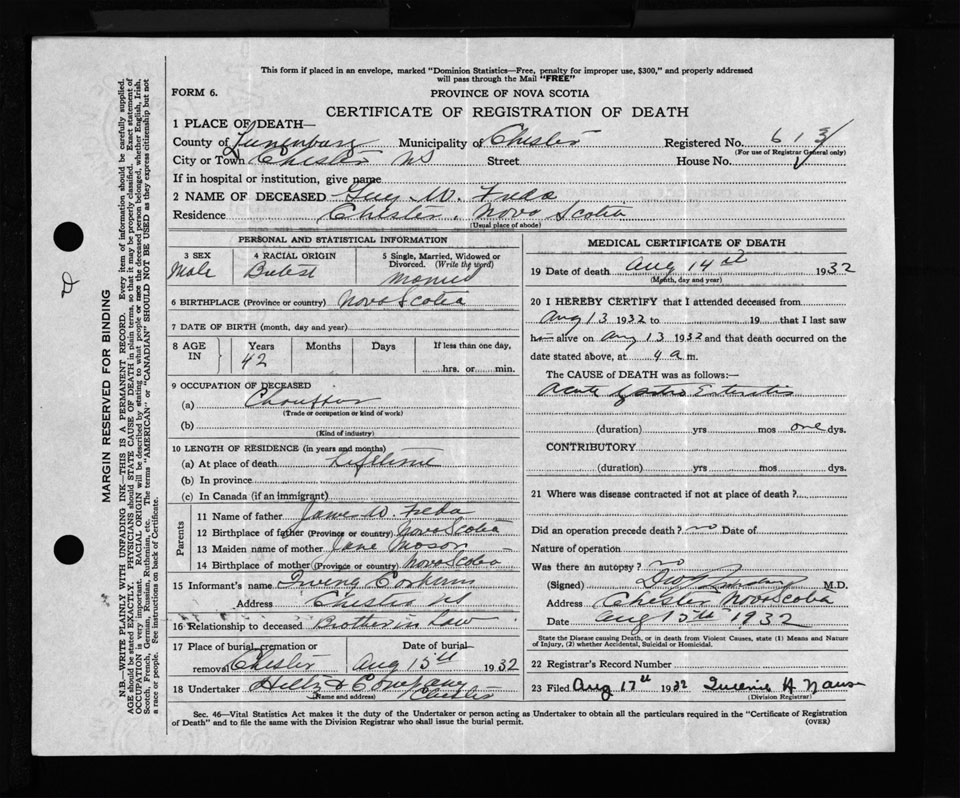 This form if placed in an envelope, marked "Dominion Statistics—Free, penalty for improper use, $300," and properly addressed
will pass through the Mail "FREE"
FORM 6.
PROVINCE OF NOVA SCOTIA
CERTIFICATE OF REGISTRATION OF DEATH
1 PLACE OF DEATH—
County of Lunenburg Municipality of Chester Registered No. 613
(For use of Registrar General only)
City or Town Chester NS Street House No.
If in hospital or institution, give name
2 NAME OF DECEASED Guy W. Freda
Residence Chester, Nova Scotia
(Usual place of abode)
PERSONAL AND STATISTICAL INFORMATION
3 SEX 4 RACIAL ORIGIN 5 Single, Married, Widowed or
Divorced. (Write the word)
Male
6 BIRTHPLACE (Province or country) Nova Scotia
7 DATE OF BIRTH (month, day and year)
8 AGE IN Years Months Days If less than one day,
42 hrs. or min.
9 OCCUPATION OF DECEASED
(a) Chauffer
(Trade or occupation or kind of work)
(b)
(Kind of industry)
10 LENGTH OF RESIDENCE (in years and months)
(a) At place of death Lifetime
(b) In province
(c) In Canada (if an immigrant)
Parents
11 Name of father James W. Freda
12 Birthplace of father (Province or country) Nova Scotia
13 Maiden name of mother Jane
14 Birthplace of mother (Province or country) Nova Scotia
15 Informant's name Irving
Address Chester NS
16 Relationship to deceased Brother in Law
17 Place of burial, cremation or Date of burial
removal Chester Aug 15th 1932
18 Undertaker Hiltz & Company
Name and address Chester
MEDICAL CERTIFICATE OF DEATH
19 Date of death Aug 14 1932
(Month, day and year)
20 I HEREBY CERTIFY that I attended deceased from
Aug 13 1932 to 19 that I last saw
h alive on Aug 13 1932 and that death occurred on the
date stated above, at 4 a m.
The CAUSE of DEATH was as follows:—
Acute Gastro Enteritis
(duration) yrs mos one dys.
CONTRIBUTORY
(duration) yrs mos dys.
21 Where was disease contracted if not at place of death?
Did an operation precede death? no Date of
Nature of operation
Was there an autopsy? no
(Signed) M.D.
Address Chester Nova Scotia
Date Aug 15th 1932
State the Disease causing Death, or in death from Violent Causes, state (1) Means and Nature
of Injury, (2) whether Accidental, Suicidal or Homicidal.
22 Registrar's Record Number
23 Filed Aug 17th 1932
(Division Registrar)
Sec. 46—Vital Statistics Act makes it the duty of the Undertaker or person acting as Undertaker to obtain all the particulars required in the "Certificate of Registration
of Death" and to file the same with the Division Registrar who shall issue the burial permit. (OVER)
MARGIN RESERVED FOR BINDING
N.B.—WRITE PLAINLY WITH UNFADING INK—THIS IS A PERMANENT RECORD. Every item of information should be carefully supplied.
AGE should be stated EXACTLY. PHYSICIANS should STATE CAUSE OF DEATH in plain terms, so that it may be properly classified. Exact statement of
OCCUPATION is very important. RACIAL ORIGIN will be described by stating to what people or race the deceased person belonged, whether English, Irish,
Scotch, French, German, Russian, Ruthenian, etc. The terms "AMERICAN" or "CANADIAN" SHOULD NOT BE USED as they express citizenship but not
a race or people. See instructions on back of Certificate.